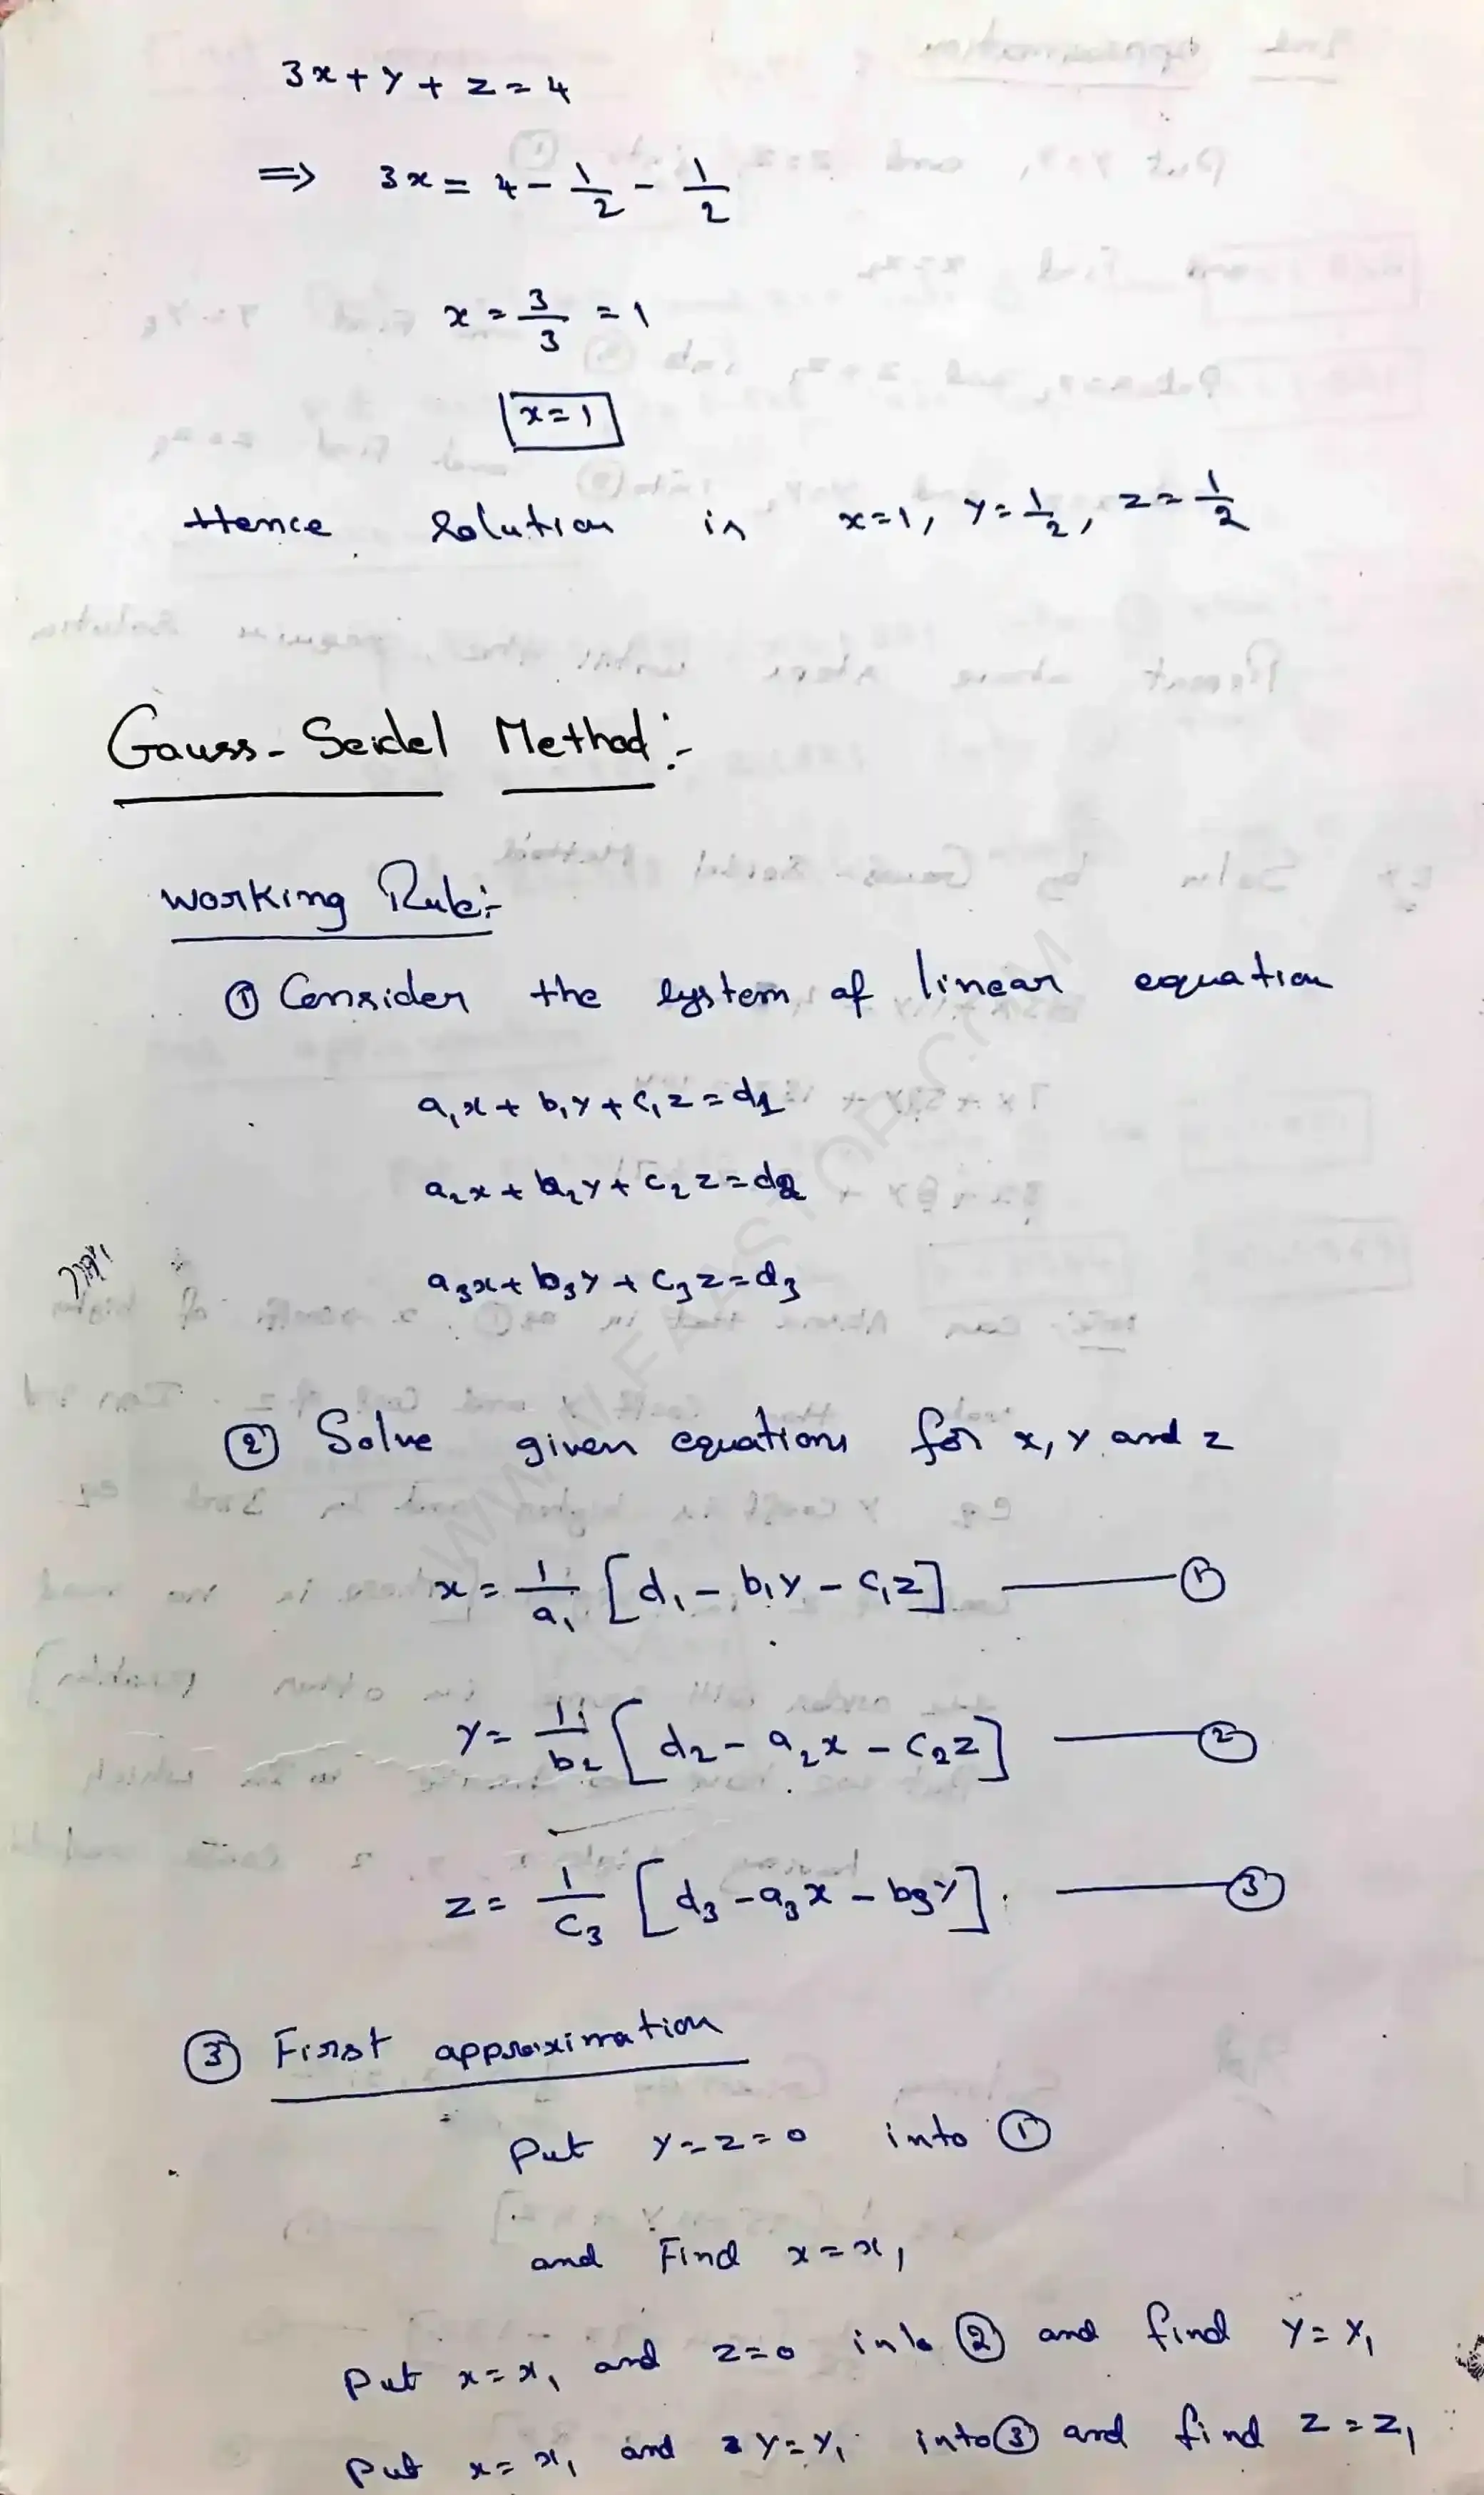 3x + y + z = 4
⇒ 3x = 4 - 1/2 - 1/2
x = 3/3 = 1
x = 1
Hence solution is x=1, y=1/2, z=1/2
Gauss-Seidel Method:-
Working Rule:-
① Consider the system of linear equation
a₁x + b₁y + c₁z = d₁
a₂x + b₂y + c₂z = d₂
a₃x + b₃y + c₃z = d₃
② Solve given equations for x, y and z
x = 1/a₁ [d₁ - b₁y - c₁z] — ①
y = 1/b₂ [d₂ - a₂x - c₂z] — ②
z = 1/c₃ [d₃ - a₃x - b₃y] — ③
③ First approximation
Put y=z=0 into ①
and Find x=x₁
Put x=x₁ and z=0 into ② and find y=y₁
Put x=x₁ and y=y₁ into ③ and find z=z₁